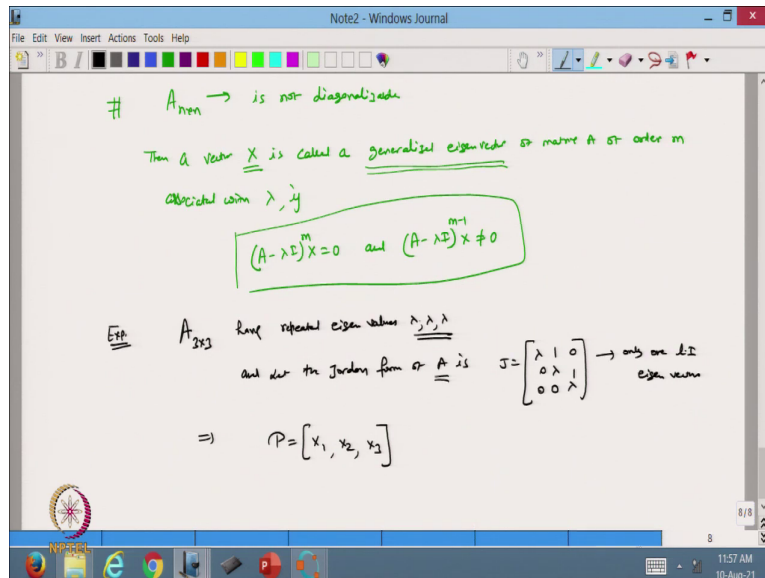 Note2 - Windows Journal
File Edit View Insert Actions Tools Help
B I
# Anxn → is not diagonalizable
Then a vector X is called a generalized eigenvector of matrix A of order m
associated with λ, if
(A-λI)^m X=0 and (A-λI)^{m-1} X≠0
Exp. A3x3 have repeated eigen values λ,λ,λ
and let the Jordan form of A is J=[λ 1 0
0 λ 1
0 0 λ] → only one L.I
eigen vectors
⇒ P=[X1, X2, X3]
8/8
8
NPTEL
11:57 AM
10-Aug-21